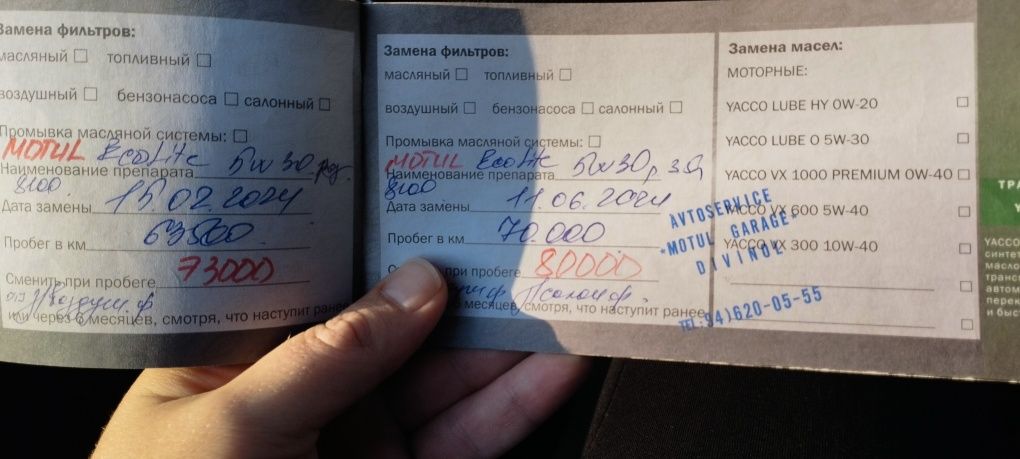 Замена фильтров:
масляный топливный
воздушный бензонасоса салонный
Промывка масляной системы:
MOTUL Ecolite 5w30
Наименование препарата
8100
Дата замены 15.02.2024
Пробег в км 63500
Сменить при пробеге 73000
Воздуш. ф
или через 6 месяцев, смотря, что наступит ранее
Замена фильтров:
масляный топливный
воздушный бензонасоса салонный
Промывка масляной системы:
MOTUL Ecolite 5w30
Наименование препарата
8100
Дата замены 11.06.2024
Пробег в км 70.000
при пробеге 80000
салон ф.
месяцев, смотря, что наступит ранее
AVTOSERVICE
"MOTUL GARAGE"
DIVINOL
TEL: 94)620-05-55
Замена масел:
МОТОРНЫЕ:
YACCO LUBE HY 0W-20
YACCO LUBE O 5W-30
YACCO VX 1000 PREMIUM 0W-40
YACCO VX 600 5W-40
YACCO VX 300 10W-40
ТРА
YACCO
синтет
масло
транс
автом
перек
и быс